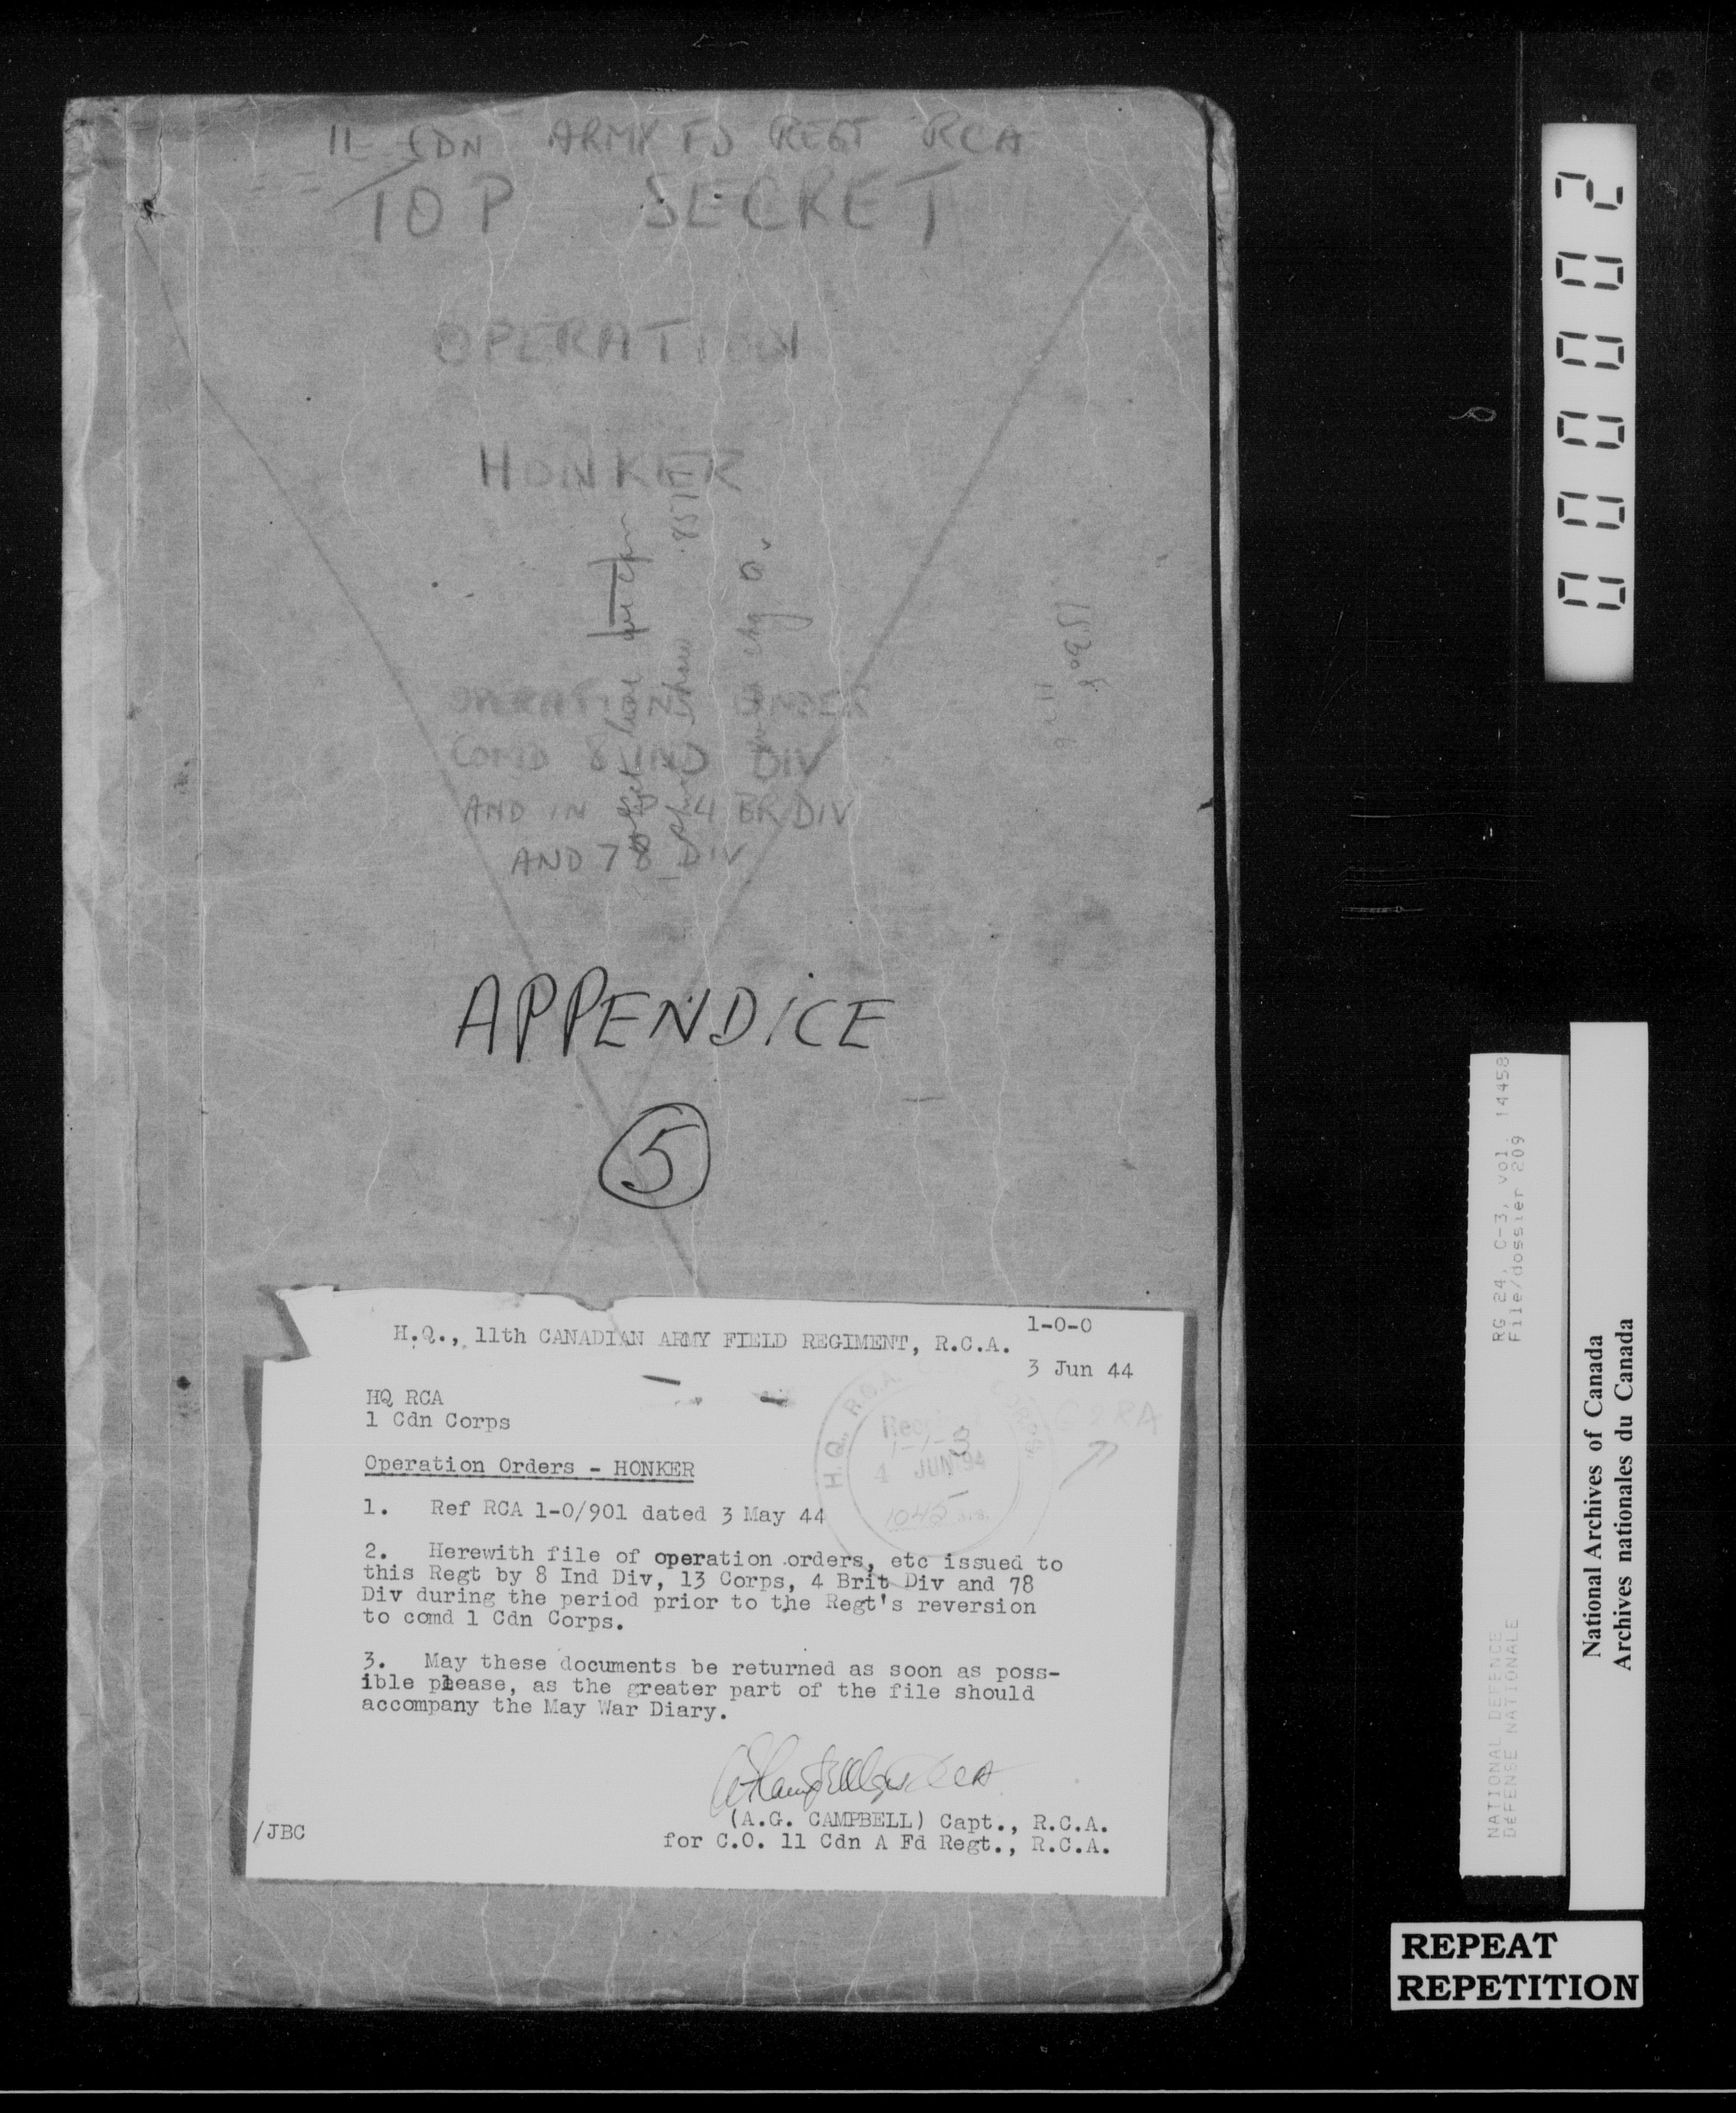 11 CDN ARMY FD REGT RCA
TOP SECRET
OPERATION
HONKER
OPERATION UNDER
COMD 8 IND DIV
AND IN 4 BR DIV
AND 78 DIV
APPENDICE
5
1-0-0
H.Q., 11th CANADIAN ARMY FIELD REGIMENT, R.C.A.
3 Jun 44
HQ RCA
1 Cdn Corps
Operation Orders - HONKER
1. Ref RCA 1-0/901 dated 3 May 44
2. Herewith file of operation orders, etc issued to
this Regt by 8 Ind Div, 13 Corps, 4 Brit Div and 78
Div during the period prior to the Regt's reversion
to comd 1 Cdn Corps.
3. May these documents be returned as soon as poss-
ible please, as the greater part of the file should
accompany the May War Diary.
(A.G. CAMPBELL) Capt., R.C.A.
/JBC
for C.O. 11 Cdn A Fd Regt., R.C.A.
H.Q., R.C.A.
4 JUN
1045
000002
RG 24, C-3, vol. 14458
File/dossier 209
NATIONAL DEFENCE
DÉFENSE NATIONALE
National Archives of Canada
Archives nationales du Canada
REPEAT
REPETITION